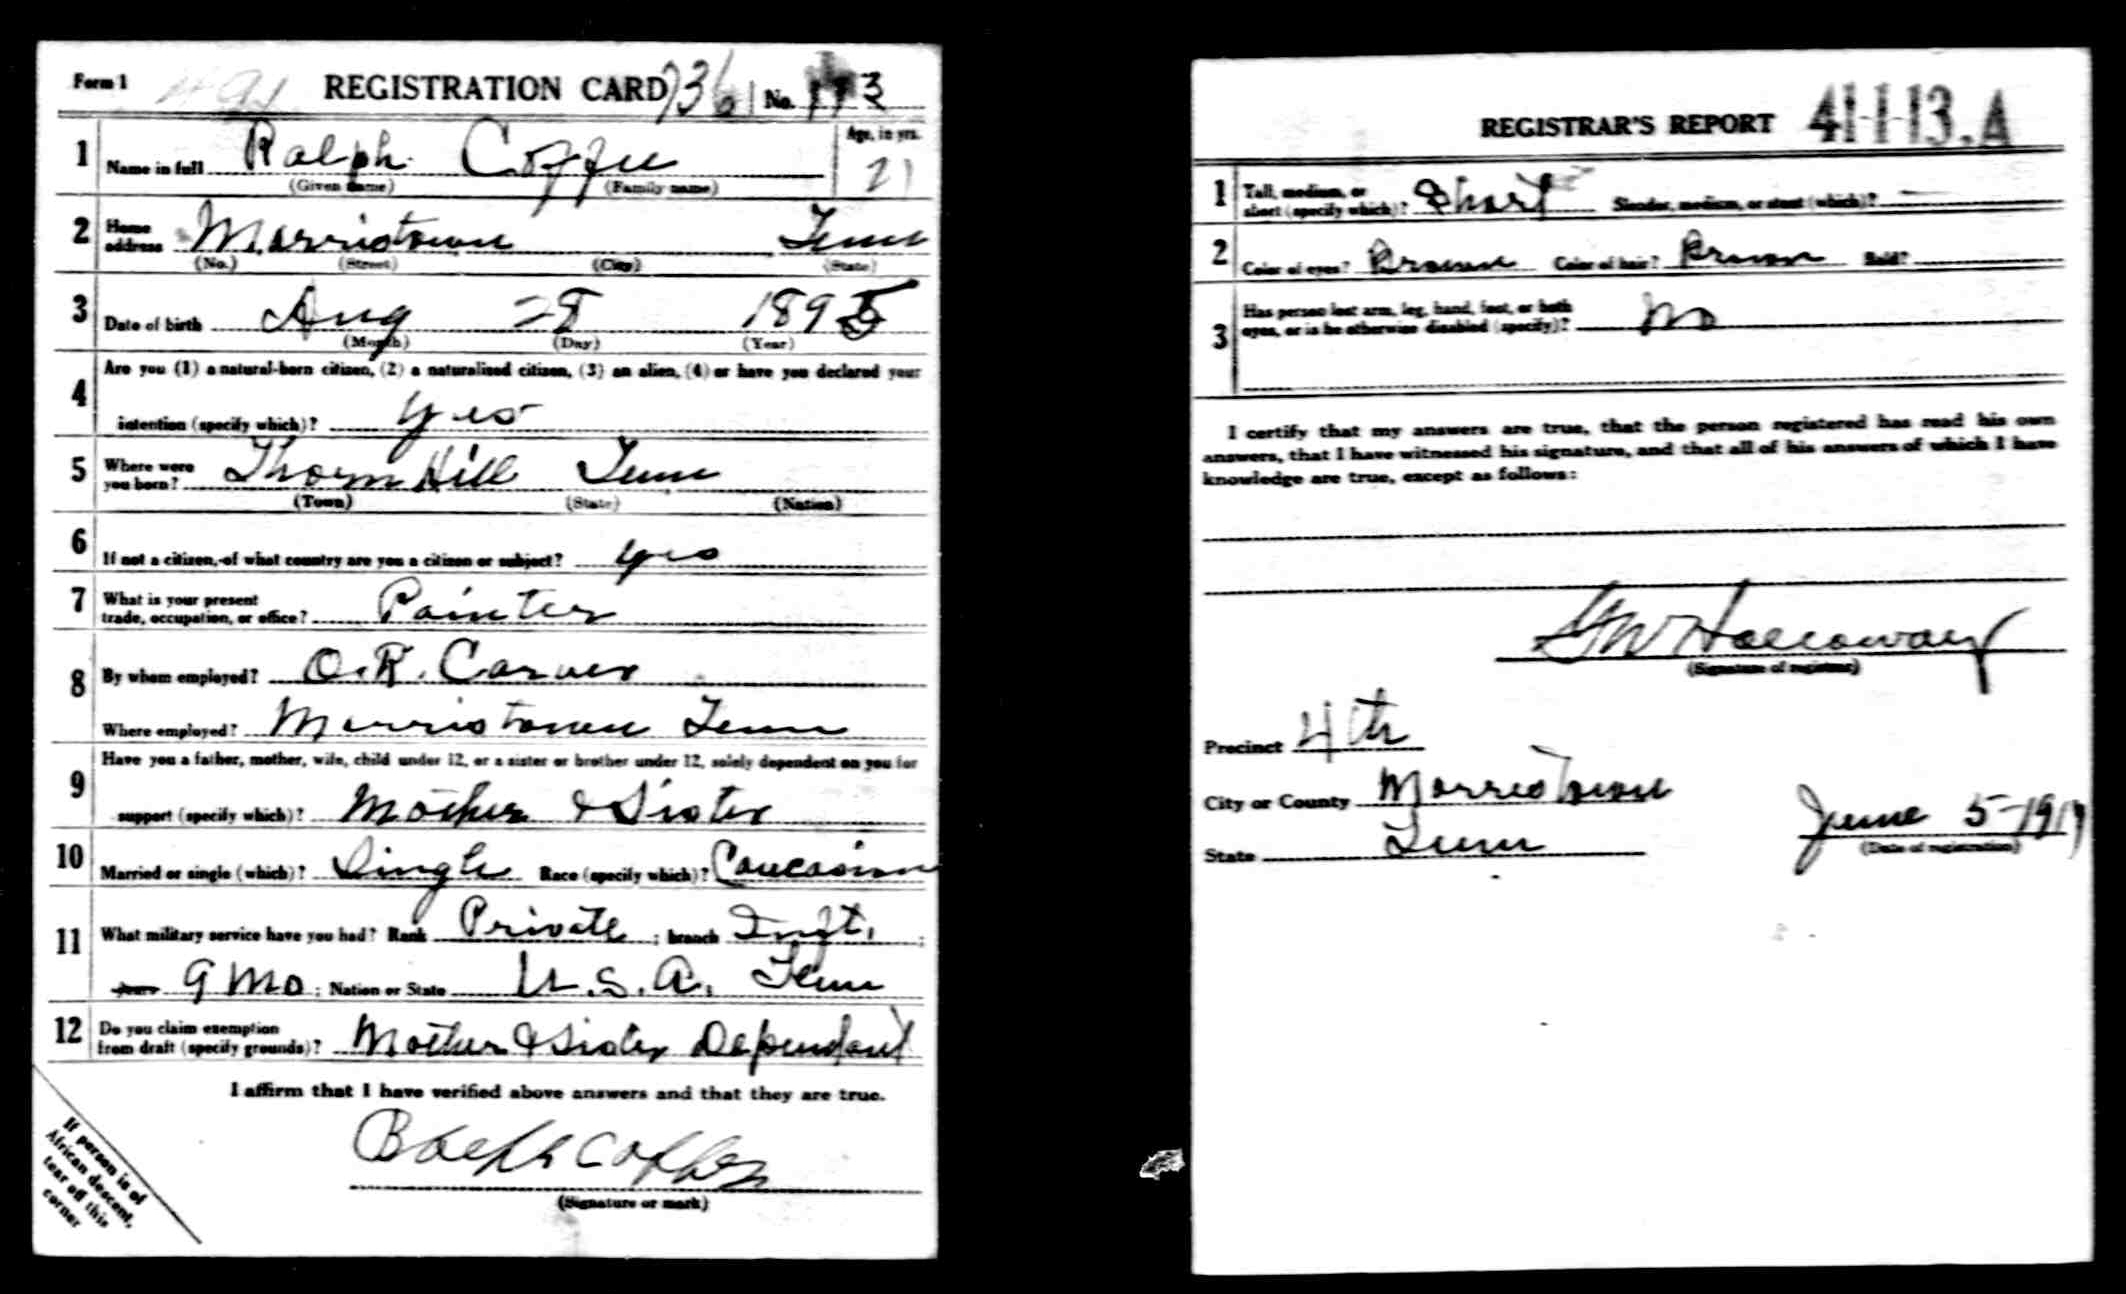 Form 1 REGISTRATION CARD 7361 No. 173
1 Name in full Ralph Coffee Age, in yrs. 21
(Given name) (Family name)
2 Home address Morristown Tenn
(No.) (Street) (City) (State)
3 Date of birth Aug 28 1895
(Month) (Day) (Year)
4 Are you (1) a natural-born citizen, (2) a naturalized citizen, (3) an alien, (4) or have you declared your
intention (specify which)? yes
5 Where were you born? Thorn Hill Tenn
(Town) (State) (Nation)
6 If not a citizen, of what country are you a citizen or subject? yes
7 What is your present trade, occupation, or office? Painter
8 By whom employed? O.R. Carver
Where employed? Morristown Tenn
9 Have you a father, mother, wife, child under 12, or a sister or brother under 12, solely dependent on you for
support (specify which)? Mother & Sister
10 Married or single (which)? Single Race (specify which)? Caucasian
11 What military service have you had? Rank Private ; branch Inft. ;
years 9 Mo ; Nation or State U.S.A. Tenn
12 Do you claim exemption from draft (specify grounds)? Mother & Sister Dependant
I affirm that I have verified above answers and that they are true.
Ralph Coffey
(Signature or mark)
If person is of
African descent,
tear off this
corner
REGISTRAR'S REPORT 41-1-13. A
1 Tall, medium, or short (specify which)? Short Slender, medium, or stout (which)?
2 Color of eyes? Brown Color of hair? Brown Bald?
3 Has person lost arm, leg, hand, foot, or both
eyes, or is he otherwise disabled (specify)? No
I certify that my answers are true, that the person registered has read his own
answers, that I have witnessed his signature, and that all of his answers of which I have
knowledge are true, except as follows:
GW Holloway
(Signature of registrar)
Precinct 4th
City or County Morristown
State Tenn June 5-1917
(Date of registration)